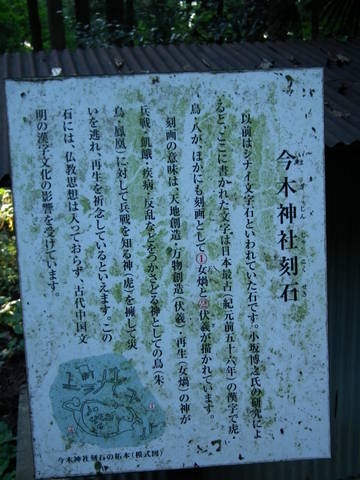 今木神社刻石
以前はシナイ文字石といわれていた石です。小坂博之氏の研究によ
ると、ここに書かれた文字は日本最古(紀元前五十六年)の漢字で虎・
鳥・八が、ほかにも刻画として①女媧と②伏羲が描かれています。
刻画の意味は、天地創造・万物創造(伏羲)・再生(女媧)の神が
兵戦・飢餓・疾病・反乱などをつかさどる神としての鳥(朱
鳥・鳳凰)に対して兵戦を知る神(虎)を擁して災
いを逃れ、再生を祈念しているといえます。この
石には、仏教思想は入っておらず、古代中国文
明の漢字文化の影響を受けています。
今木神社刻石の拓本(模式図)